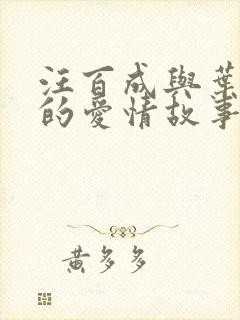 汪百成與葉
的愛情故事
黃多多